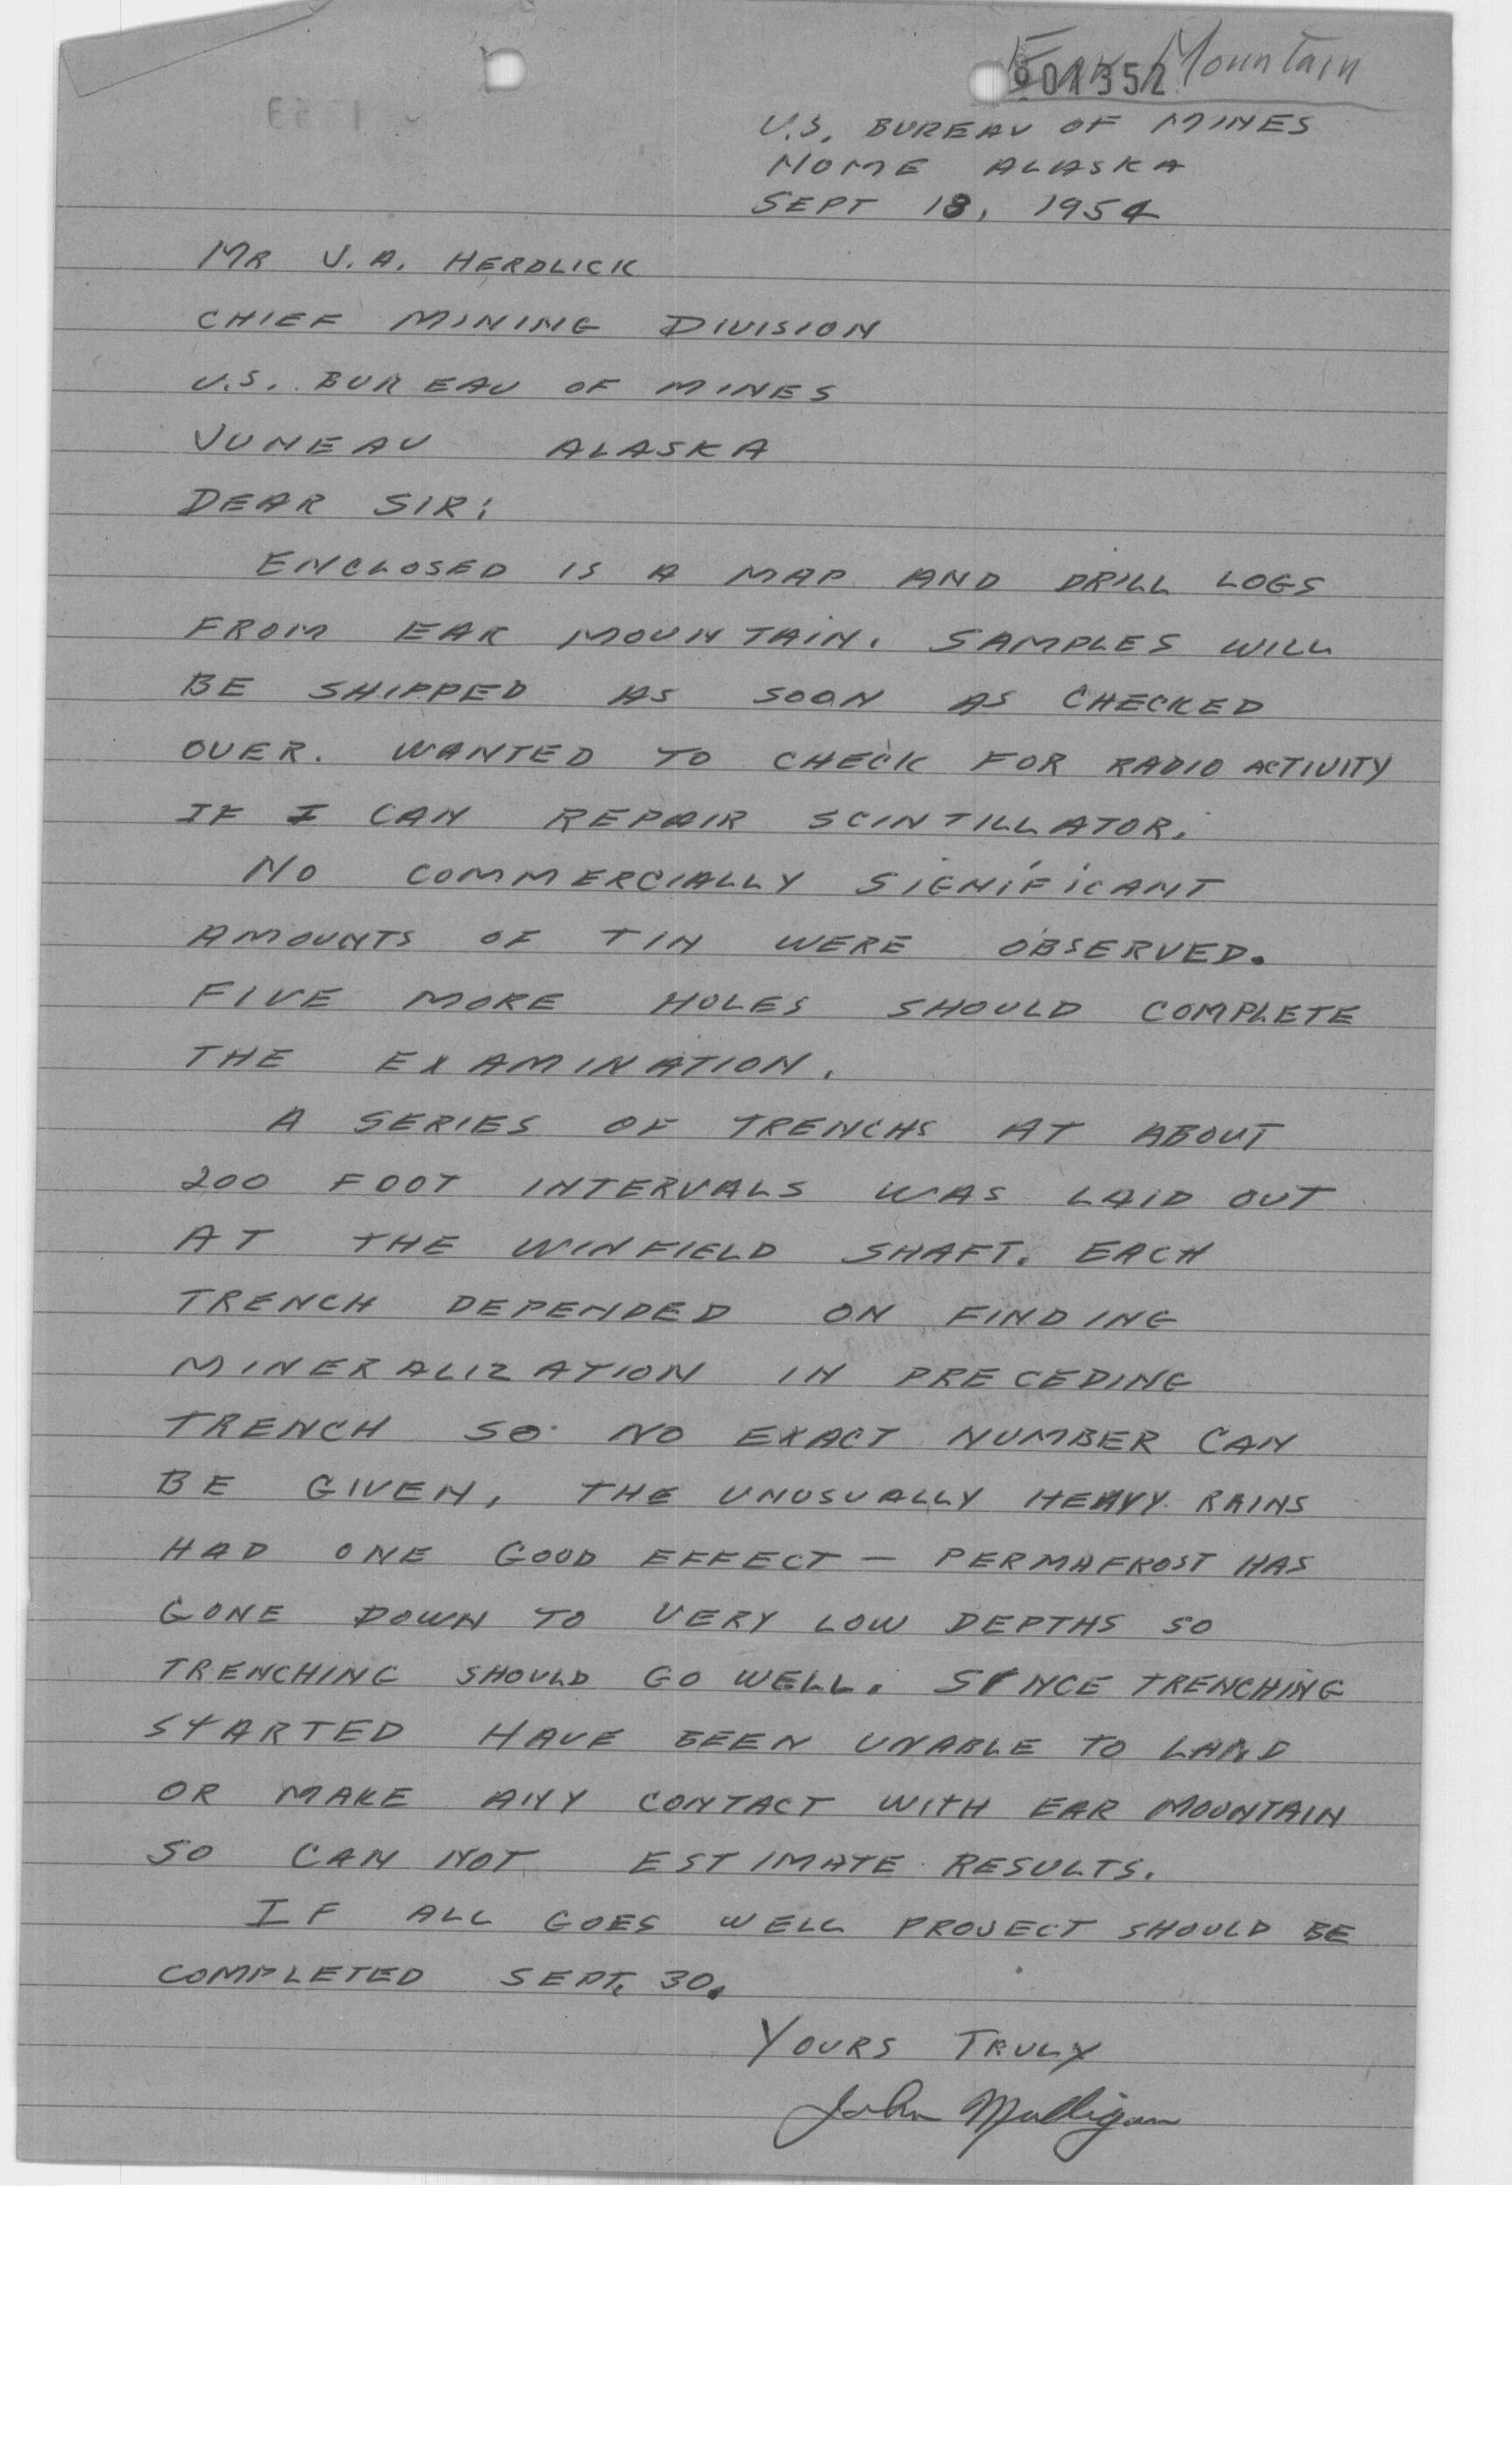 Ear Mountain
901352
U.S. BUREAU OF MINES
NOME ALASKA
SEPT 18, 1954
MR J.A. HERDLICK
CHIEF MINING DIVISION
U.S. BUREAU OF MINES
JUNEAU ALASKA
DEAR SIR:
ENCLOSED IS A MAP AND DRILL LOGS
FROM EAR MOUNTAIN. SAMPLES WILL
BE SHIPPED AS SOON AS CHECKED
OVER. WANTED TO CHECK FOR RADIO ACTIVITY
IF I CAN REPAIR SCINTILLATOR.
NO COMMERCIALLY SIGNIFICANT
AMOUNTS OF TIN WERE OBSERVED.
FIVE MORE HOLES SHOULD COMPLETE
THE EXAMINATION.
A SERIES OF TRENCHS AT ABOUT
200 FOOT INTERVALS WAS LAID OUT
AT THE WINFIELD SHAFT. EACH
TRENCH DEPENDED ON FINDING
MINERALIZATION IN PRECEDING
TRENCH SO NO EXACT NUMBER CAN
BE GIVEN, THE UNUSUALLY HEAVY RAINS
HAD ONE GOOD EFFECT — PERMAFROST HAS
GONE DOWN TO VERY LOW DEPTHS SO
TRENCHING SHOULD GO WELL. SINCE TRENCHING
STARTED HAVE BEEN UNABLE TO LAND
OR MAKE ANY CONTACT WITH EAR MOUNTAIN
SO CAN NOT ESTIMATE RESULTS.
IF ALL GOES WELL PROJECT SHOULD BE
COMPLETED SEPT. 30.
YOURS TRULY
John Mulligan